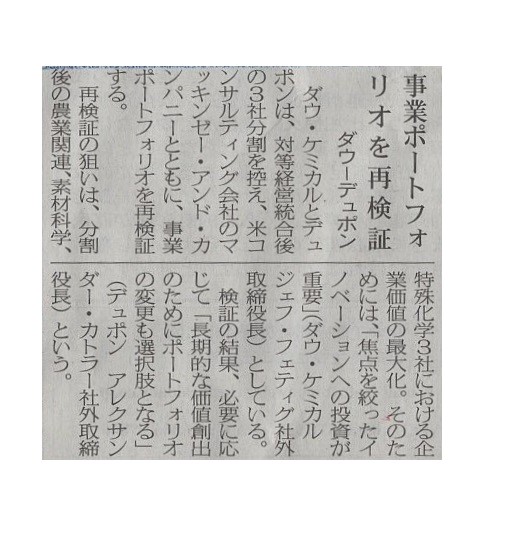 事業ポートフォ
リオを再検証
ダウーデュポン
ダウ・ケミカルとデュ
ポンは、対等経営統合後
の3社分割を控え、米コ
ンサルティング会社のマ
ッキンゼー・アンド・カ
ンパニーとともに、事業
ポートフォリオを再検証
する。
再検証の狙いは、分割
後の農業関連、素材科学、
特殊化学3社における企
業価値の最大化。そのた
めには、「焦点を絞ったイ
ノベーションへの投資が
重要」(ダウ・ケミカル
ジェフ・フェティグ社外
取締役長)としている。
検証の結果、必要に応
じて「長期的な価値創出
のためにポートフォリオ
の変更も選択肢となる」
(デュポン　アレクサン
ダー・カトラー社外取締
役長)という。